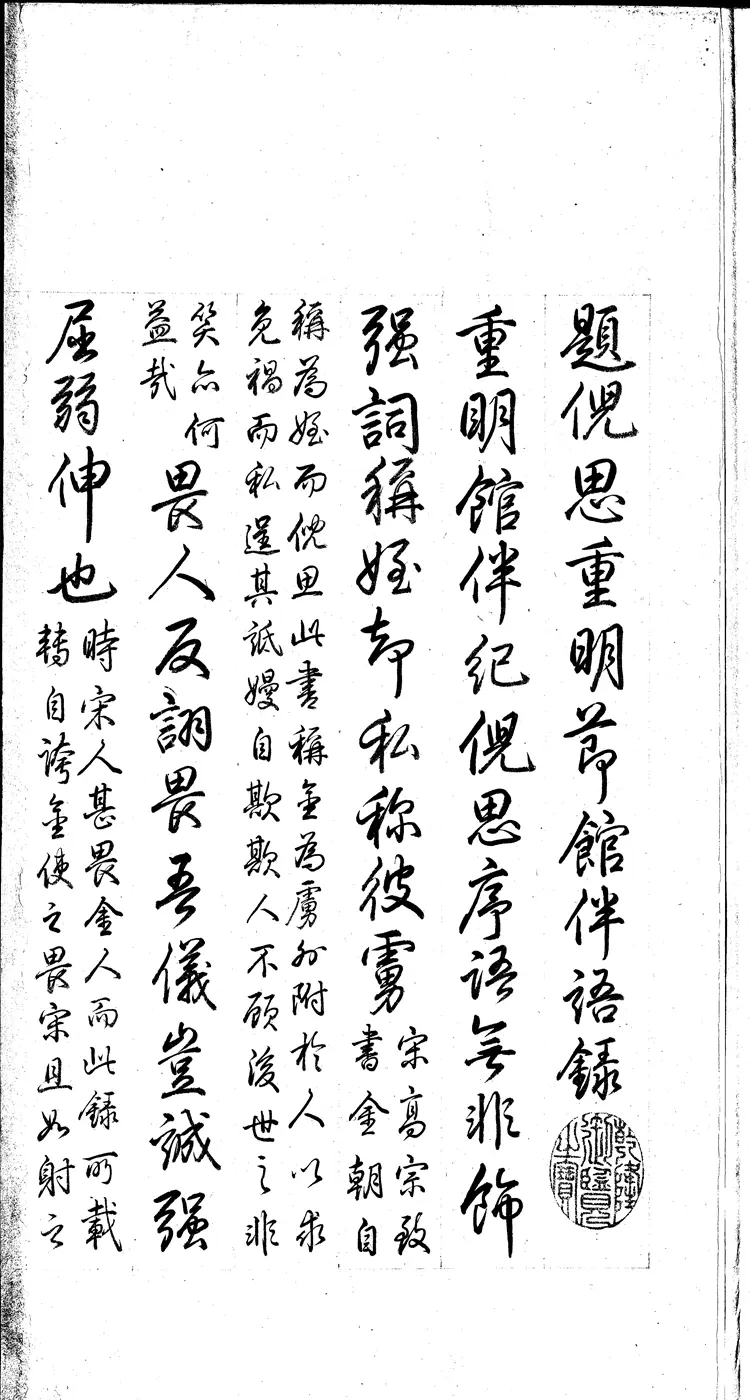 題倪思重明節館伴語錄
乾隆御覽之寶
重明館伴紀倪思序語無非飾
强詞稱姪却私称彼虜
宋高宗致
書金朝自
稱為姪而倪思此書稱金為虜外附於人以求
免禍而私逞其詆嫚自欺欺人不顧後世之非
笑亦何
益哉
畏人反詡畏吾儀豈誠强
屈弱伸也
時宋人甚畏金人而此錄所載
轉自誇金使之畏宋且如射之